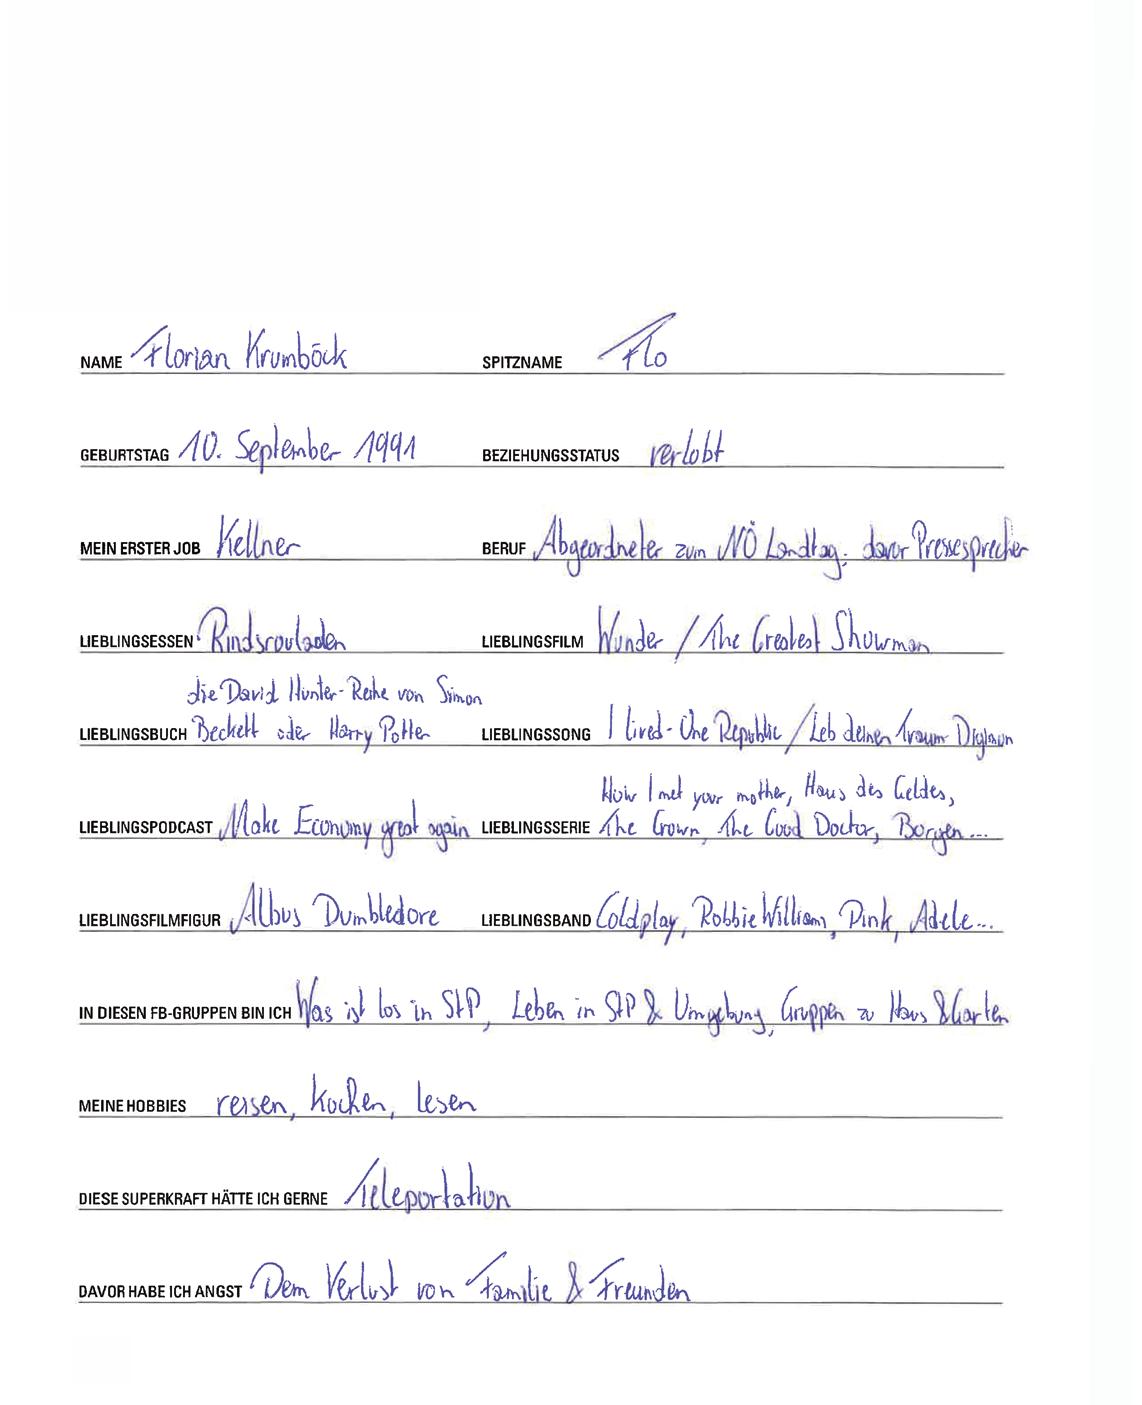 NAME Florian Krumböck SPITZNAME Flo
GEBURTSTAG 10. September 1991 BEZIEHUNGSSTATUS verlobt
MEIN ERSTER JOB Kellner BERUF Abgeordneter zum NÖ Landtag; davor Pressesprecher
LIEBLINGSESSEN Rindsrouladen LIEBLINGSFILM Wunder / The Greatest Showman
die David Hunter-Reihe von Simon
LIEBLINGSBUCH Beckett oder Harry Potter LIEBLINGSSONG I lived - One Republic / Leb deinen Traum Digimon
How I met your mother, Haus des Geldes,
LIEBLINGSPODCAST Make Economy great again LIEBLINGSSERIE The Crown, The Good Doctor, Borgen...
LIEBLINGSFILMFIGUR Albus Dumbledore LIEBLINGSBAND Coldplay, Robbie William, Pink, Adele...
IN DIESEN FB-GRUPPEN BIN ICH Was ist los in StP, Leben in StP & Umgebung, Gruppen zu Haus & Garten
MEINE HOBBIES reisen, kochen, lesen
DIESE SUPERKRAFT HÄTTE ICH GERNE Teleportation
DAVOR HABE ICH ANGST Dem Verlust von Familie & Freunden